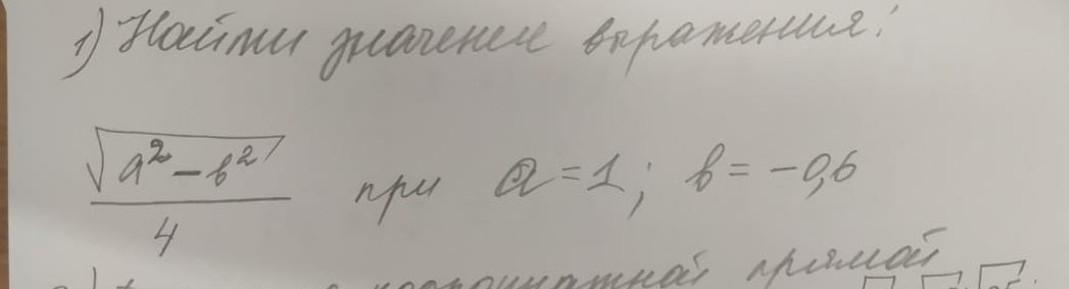 1) Найти значение выражения:
√(a² - b²) / 4 при a = 1; b = -0,6
координатной прямой